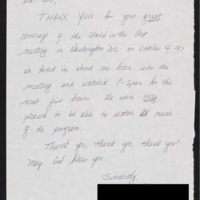 THANK YOU for your great
coverage of the Stand in the Gap
meeting in Washington DC on October 4, 1997
We tuned in about one hour into the
meeting and watched C-Span for the
next five hours. We were very
pleased to be able to watch so much
of the program.
Thank you, thank you, thank you!
May God bless you.
Sincerely,